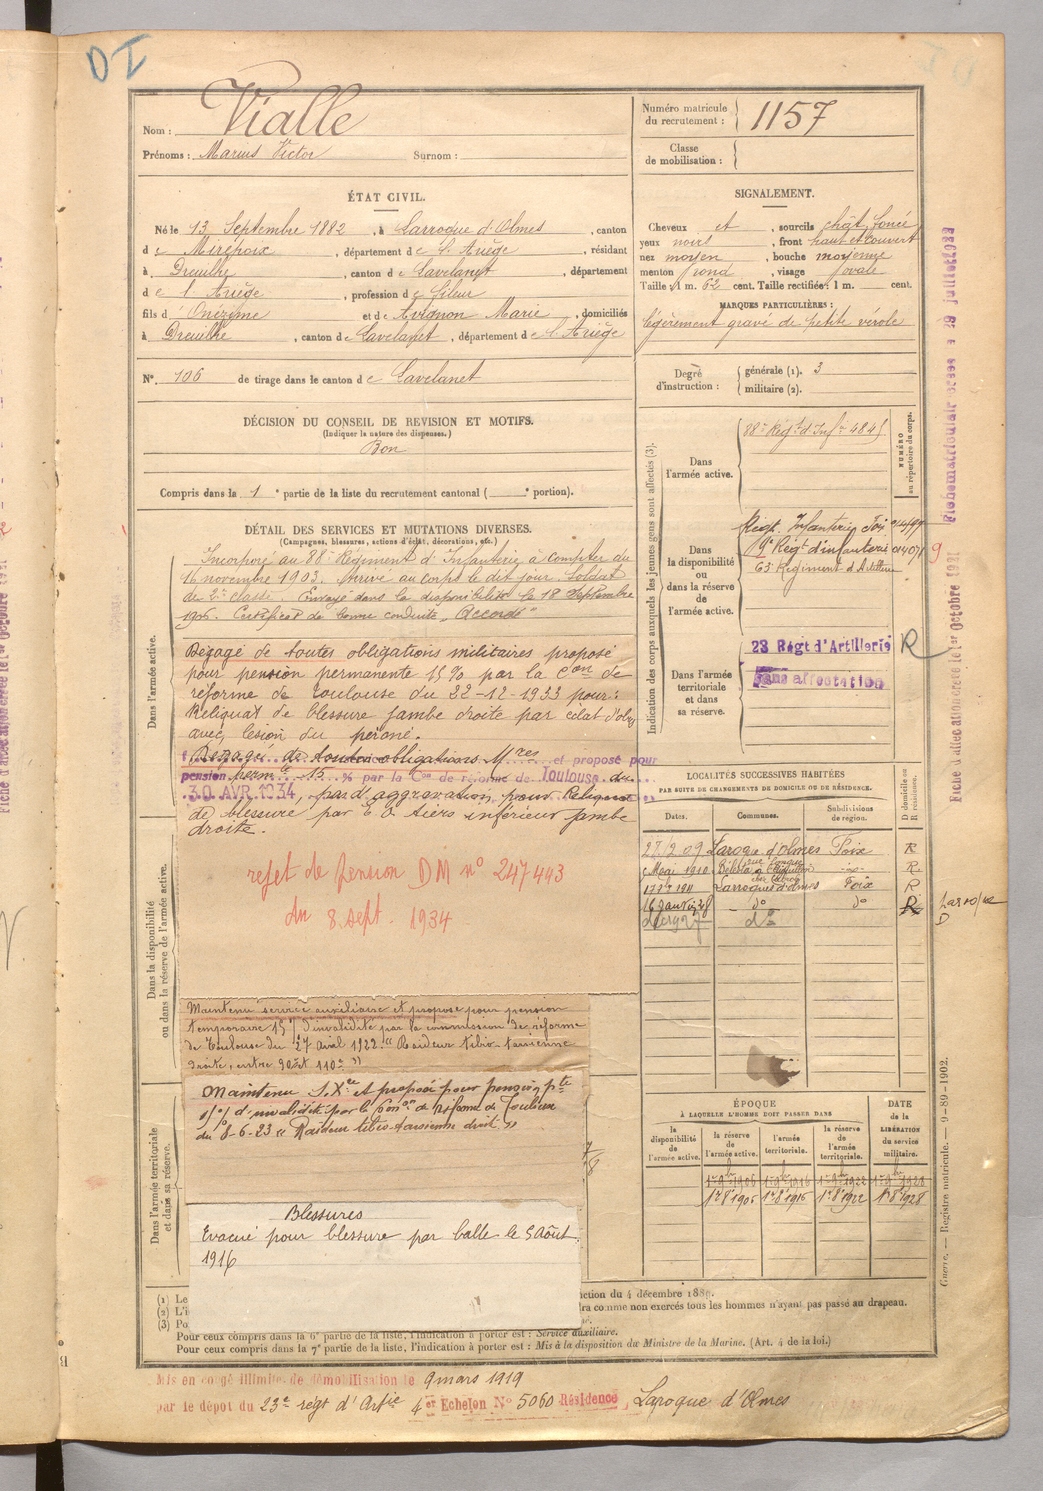 DI
Nom : Vialle
Prénoms : Marius Victor Surnom :
Numéro matricule du recrutement : 1157
Classe de mobilisation :
ÉTAT CIVIL.
Né le 13 Septembre 1882, à Larroque d'Olmes, canton
de Mirepoix, département de l'Ariège, résidant
à Dreuilhe, canton de Lavelanet, département
de l'Ariège, profession de fileur
fils d' Onézime et de Avignon Marie, domiciliés
à Dreuilhe, canton de Lavelanet, département de l'Ariège
N° 106 de tirage dans le canton de Lavelanet
SIGNALEMENT.
Cheveux et, sourcils chât. foncé
yeux noirs, front haut et couvert
nez moyen, bouche moyenne
menton rond, visage ovale
Taille : 1 m. 62 cent. Taille rectifiée : 1 m. cent.
MARQUES PARTICULIÈRES :
légèrement gravé de petite vérole
Degré d'instruction : générale (1). 3
militaire (2).
DÉCISION DU CONSEIL DE REVISION ET MOTIFS.
(Indiquer la nature des dispenses.)
Bon
Compris dans la 1e partie de la liste du recrutement cantonal ( e portion).
DÉTAIL DES SERVICES ET MUTATIONS DIVERSES.
(Campagnes, blessures, actions d'éclat, décorations, etc.)
Dans l'armée active.
Incorporé au 88e Régiment d'Infanterie à compter du
16 novembre 1903. Arrivé au corps le dit jour. Soldat
de 2e classe. Envoyé dans la disponibilité le 18 Septembre
1906. Certificat de bonne conduite "Accordé"
Dégagé de toutes obligations militaires proposé
pour pension permanente 15% par la Con de
réforme de Toulouse du 22-12-1933 pour :
Reliquat de blessure jambe droite par éclat d'obus
avec lésion du péroné.
Dégagé de toutes obligations Mres et proposé pour
pension perm te 15 % par la Con de réforme de Toulouse du
30 AVR. 1934, pas d'aggravation, pour Reliquat
de blessure par E.O. tiers inférieur jambe
droite.
rejet de Pension DM n° 247443
du 8. sept. 1934
Dans la disponibilité ou dans la réserve de l'armée active.
Maintenu service auxiliaire et proposé pour pension
temporaire 15% d'invalidité par la commission de réforme
de Toulouse du 27 Avril 1922 "Raideur tibio-tarsienne
droite, entre 90° et 110°"
Maintenu S.Xre et proposé pour pension pte
d'invalidité par la Con de réforme de Toulouse
du 8-6-23 "Raideur tibio-tarsienne droite"
Dans l'armée territoriale et dans sa réserve.
Blessures
Evacué pour blessure par balle le 5 Août
1916
Indication des corps auxquels les jeunes gens sont affectés (3).
NUMÉRO au répertoire du corps.
Dans l'armée active.
88e Régt d'Infie 4845
Dans la disponibilité ou dans la réserve de l'armée active.
Régt. Infanterie Foix
Régt d'infanterie
Régiment d'Artillerie
Dans l'armée territoriale et dans sa réserve.
23 Régt d'Artillerie R
Sans affectation
LOCALITÉS SUCCESSIVES HABITÉES
PAR SUITE DE CHANGEMENTS DE DOMICILE OU DE RÉSIDENCE.
Dates. Communes. Subdivisions de région. D domicile ou R résidence.
27/2 09 Laroque d'Olmes Foix R
Mai 1910 Bélesta R
1911 Larroque d'Olmes Foix R
do do R Laroque
do D
ÉPOQUE
À LAQUELLE L'HOMME DOIT PASSER DANS
la disponibilité de l'armée active.
la réserve de l'armée active.
l'armée territoriale.
la réserve de l'armée territoriale.
DATE de la LIBÉRATION du service militaire.
1er 9bre 1906 1er 9bre 1916 1er 9bre 1922 1er 9bre 1928
1er 8 1906 1er 8 1916 1er 8 1922 1er 8 1928
(1) Le
nction du 4 décembre 1889.
(2) L'i
ra comme non exercés tous les hommes n'ayant pas passé au drapeau.
(3) Po
Pour ceux compris dans la 6e partie de la liste, l'indication à porter est : Service auxiliaire.
Pour ceux compris dans la 7e partie de la liste, l'indication à porter est : Mis à la disposition du Ministre de la Marine. (Art. 4 de la loi.)
Mis en congé illimité de démobilisation le 9 mars 1919
par le dépôt du 23e régt d'Artie 4er Echelon N° 5060 Résidence Laroque d'Olmes
Guerre. — Registre matricule. — 9-89-1902.